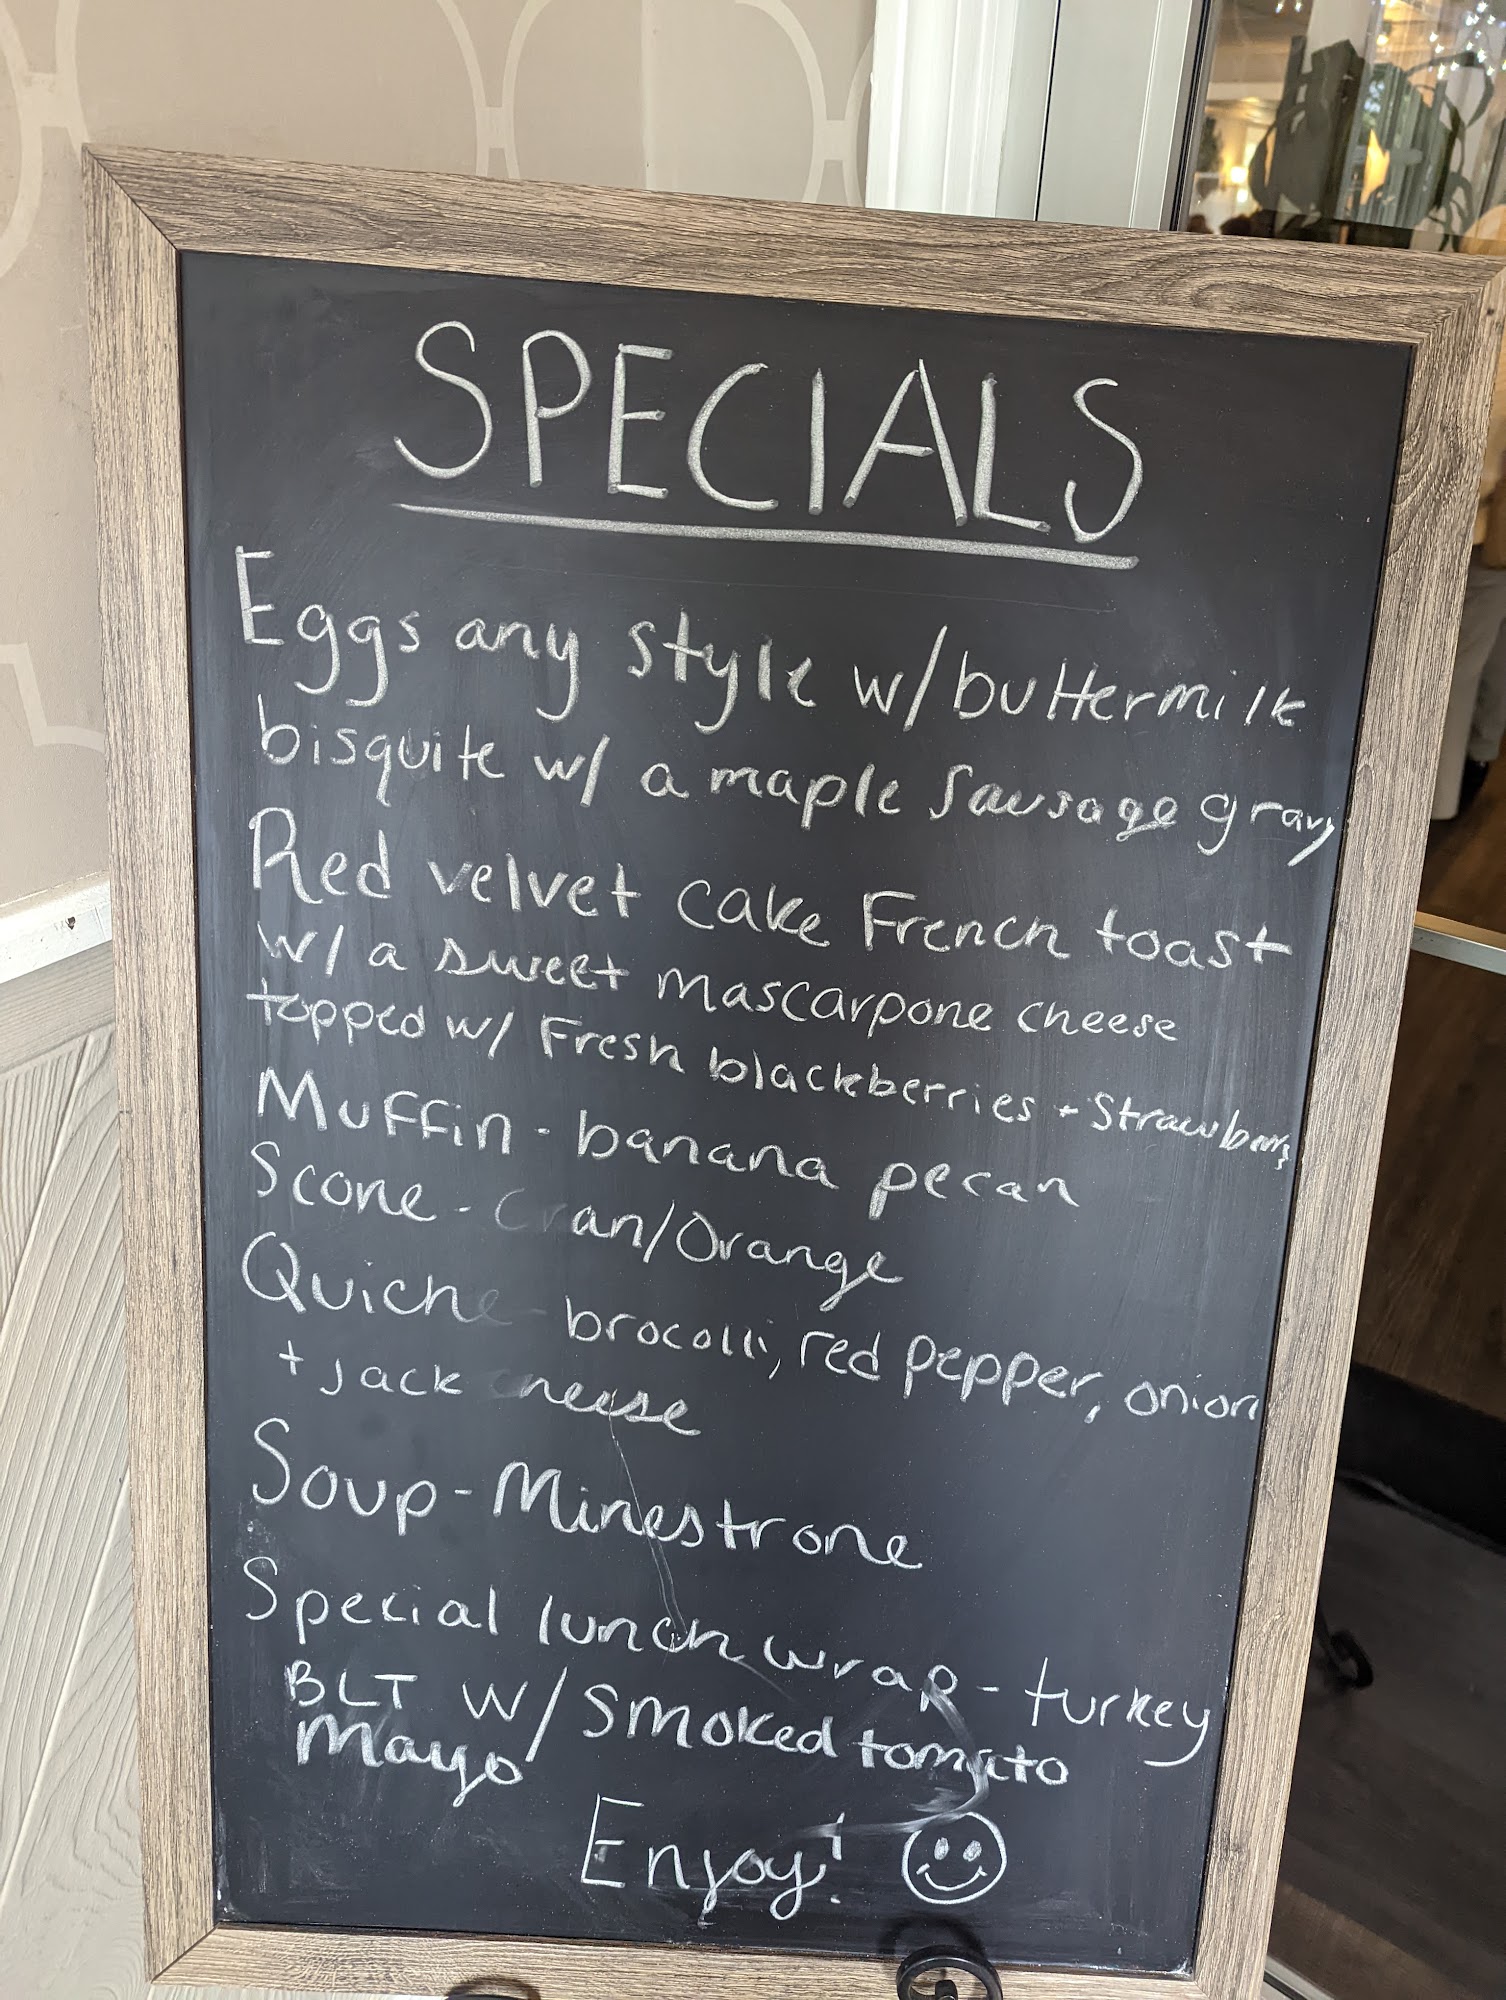 SPECIALS
Eggs any style w/ buttermilk
bisquite w/ a maple sausage gravy
Red velvet cake French toast
w/ a sweet mascarpone cheese
topped w/ Fresh blackberries + Strawberries
Muffin - banana pecan
Scone - Cran/Orange
Quiche - brocolli, red pepper, onion
+ Jack cheese
Soup - Minestrone
Special lunch wrap - turkey
BLT w/ smoked tomato
Mayo
Enjoy!